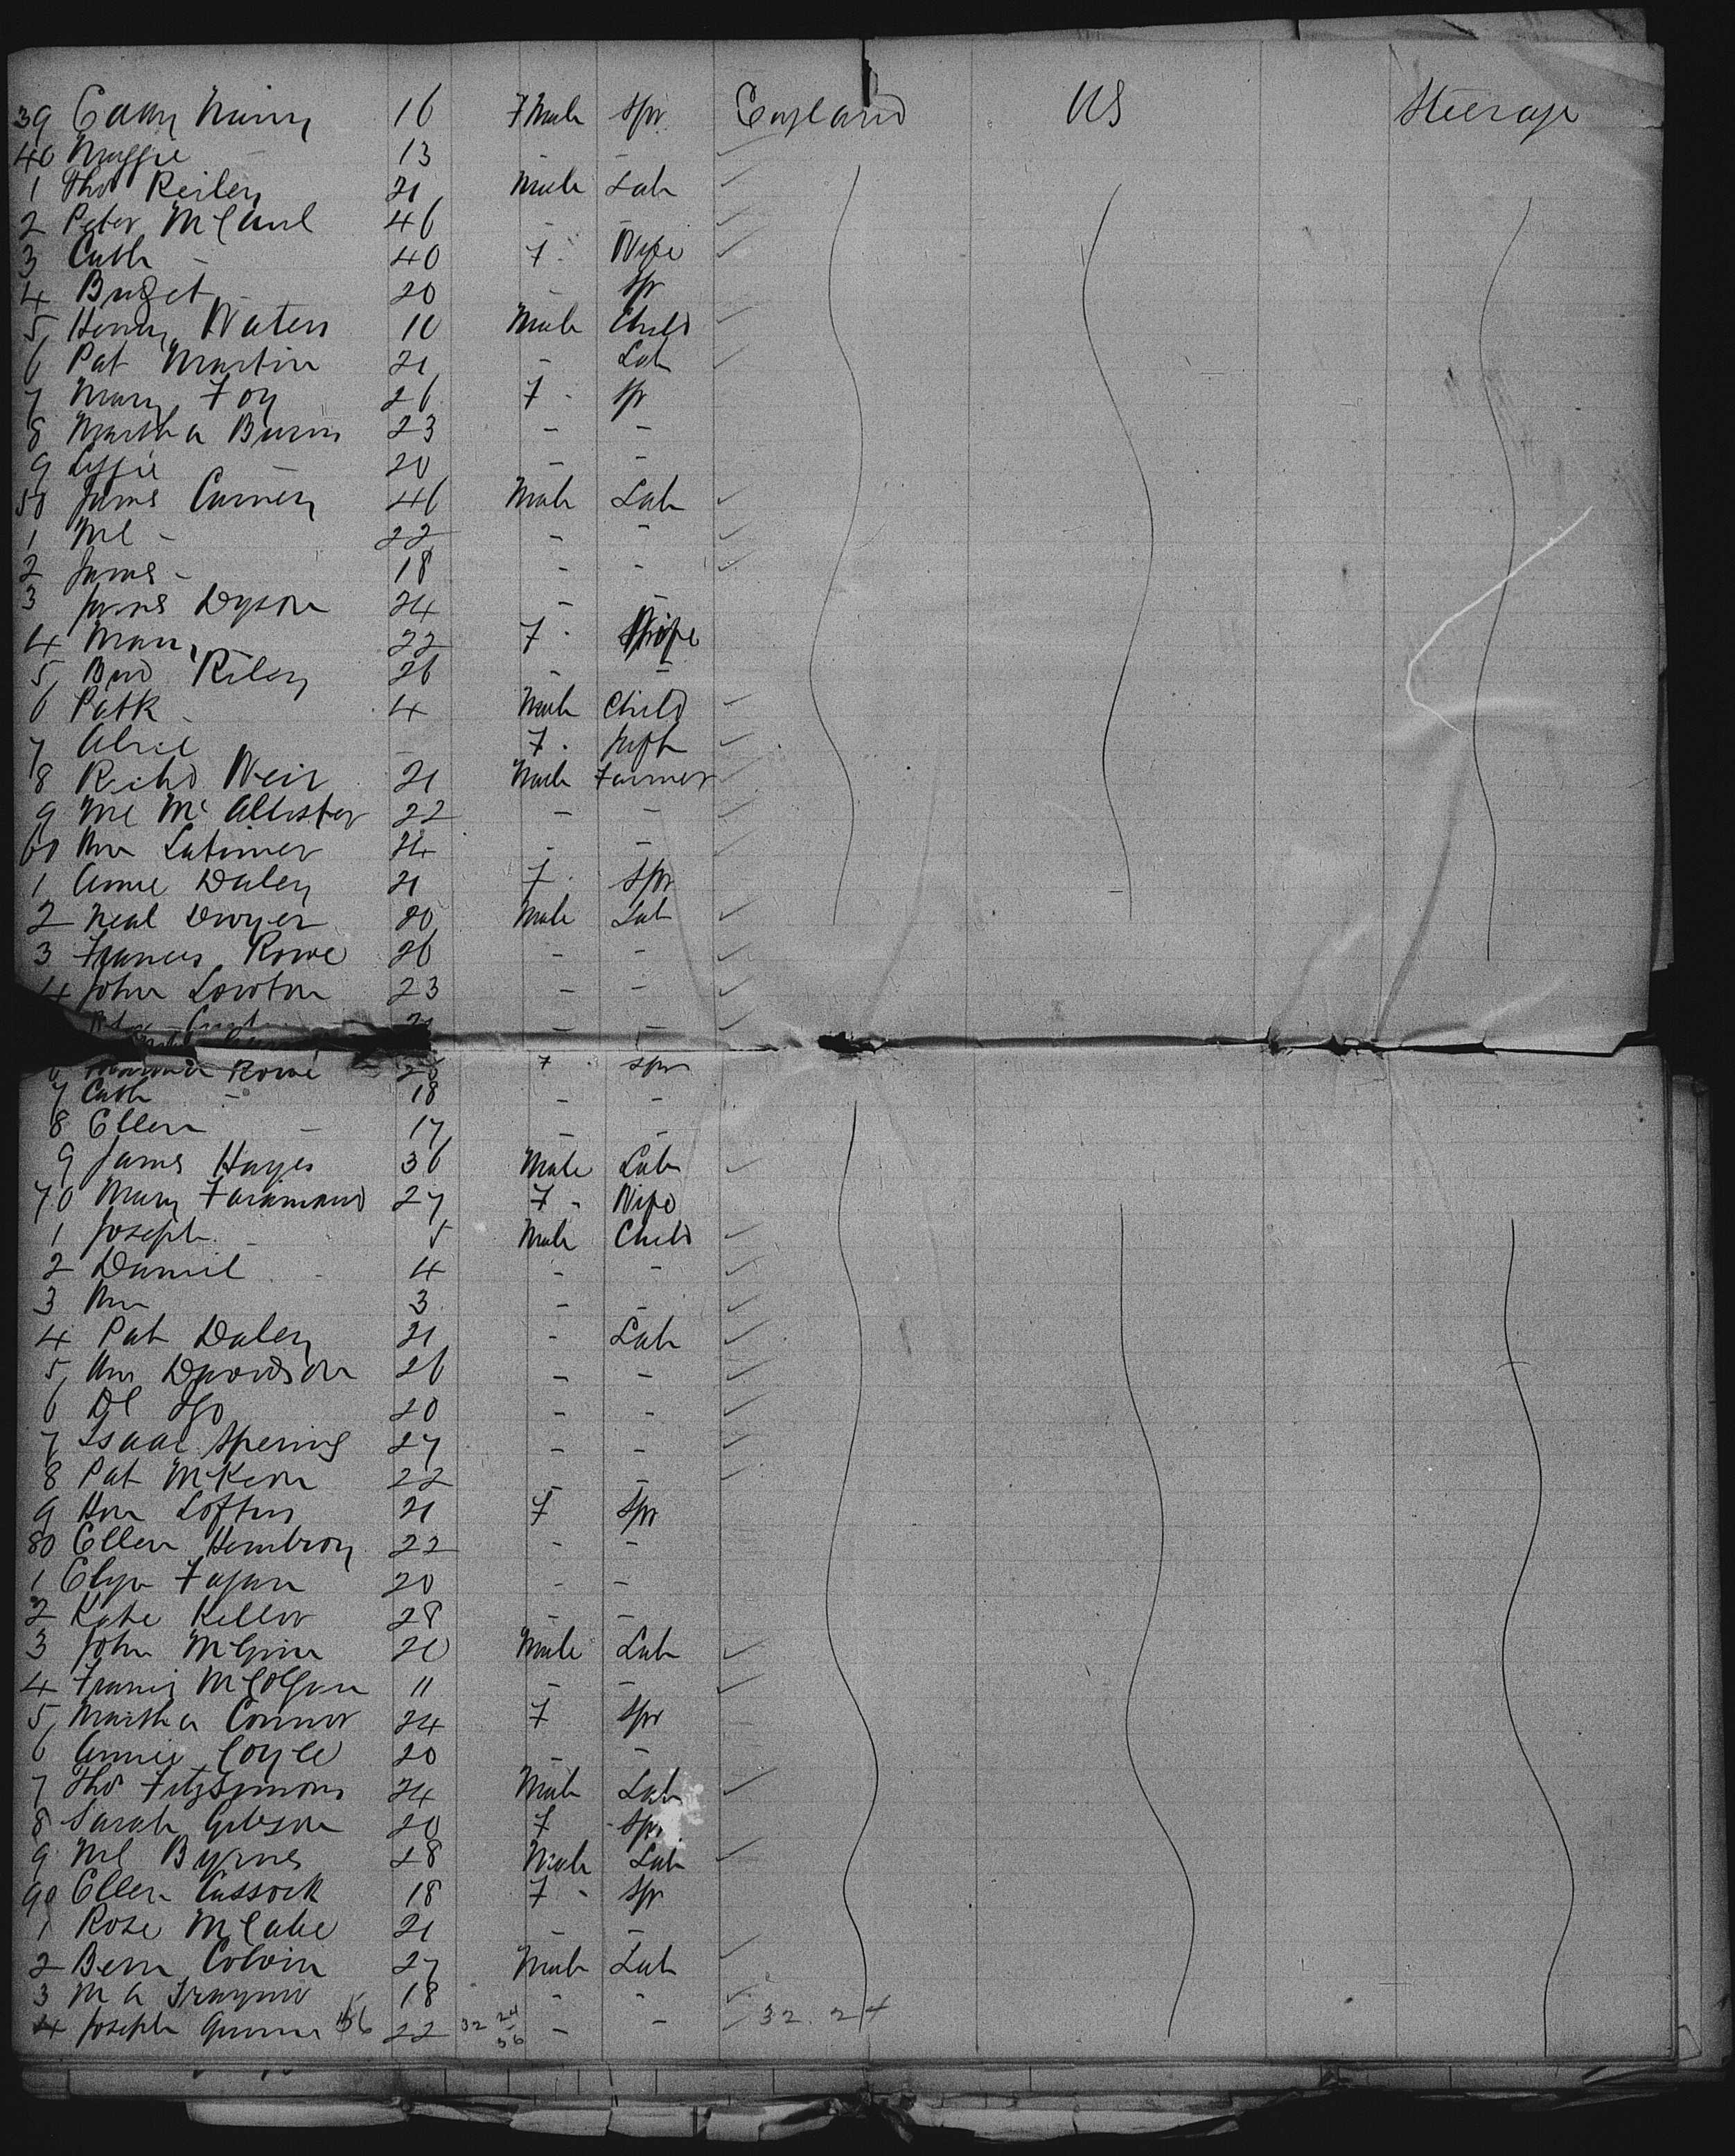 39 16 Female Spr England US Steerage
40 Maggie - 13 - -
1 Thos Reiley 21 Male Lab
2 Peter McCaul 46 - -
3 Cath - 40 F. Wife
4 Bridget - 20 - Spr
5 Henry Waters 10 Male Child
6 Pat Martin 21 - Lab
7 Mary Foy 26 F. Spr
8 Martha Burns 23 - -
9 Lizzie - 20 - -
50 James Carney 46 Male Lab
1 Ml - 22 - -
2 James - 18 - -
3 James Dyson 24 - -
4 Mary - 22 F. Wife
5 Brid Riley 26 - -
6 Patk - 4 Male Child
7 Alice - F. Inft
8 Richd Weir 21 Male Farmer
9 Ml McAllister 22 - -
60 Wm Latimer 24 - -
1 Annie Daley 21 F. Spr
2 Neal Dwyer 20 Male Lab
3 Francis Rowe 26 - -
4 John Lowton 23 - -
21 - -
6 Rowe F. Spr
7 Cath - 18 - -
8 Ellen - 17 - -
9 James Hayes 36 Male Lab
70 Mary 27 F - Wife
1 Joseph - 5 Male Child
2 Daniel - 4 - -
3 Wm 3 - -
4 Pat Daley 21 - Lab
5 Wm Davidson 26 - -
6 Dl 20 - -
7 Isaac Spering 27 - -
8 Pat McKeon 22 - -
9 Hon Loftus 21 F Spr
80 Ellen 22 - -
1 Eliza Fagan 20 - -
2 Kate Keller 28 - -
3 John McGinn 20 Male Lab
4 Francis McColgan 11 - -
5 Martha Connor 24 F Spr
6 Annie Coyle 20 - -
7 Thos Fitzsimons 24 Male Lab
8 Sarah Gibson 20 F - Spr
9 Ml Byrnes 28 Male Lab
90 Ellen Cussock 18 F - Spr
1 Rose McCabe 21 - -
2 Bern Colvin 27 Male Lab
3 M A 18 - -
4 Joseph 56 22 32 24 - - 32 24
56